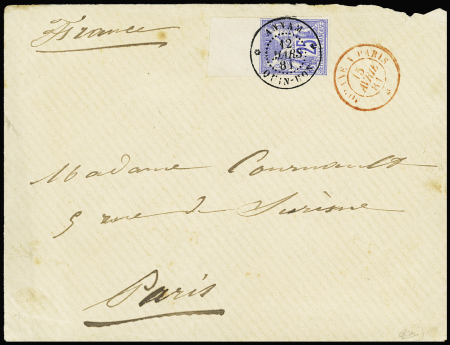 France
ANNAM
12
MARS
81
QUIN-HON
25
A PARIS
15
AVRIL
81
Madame Cournault
5 rue de Surène
Paris